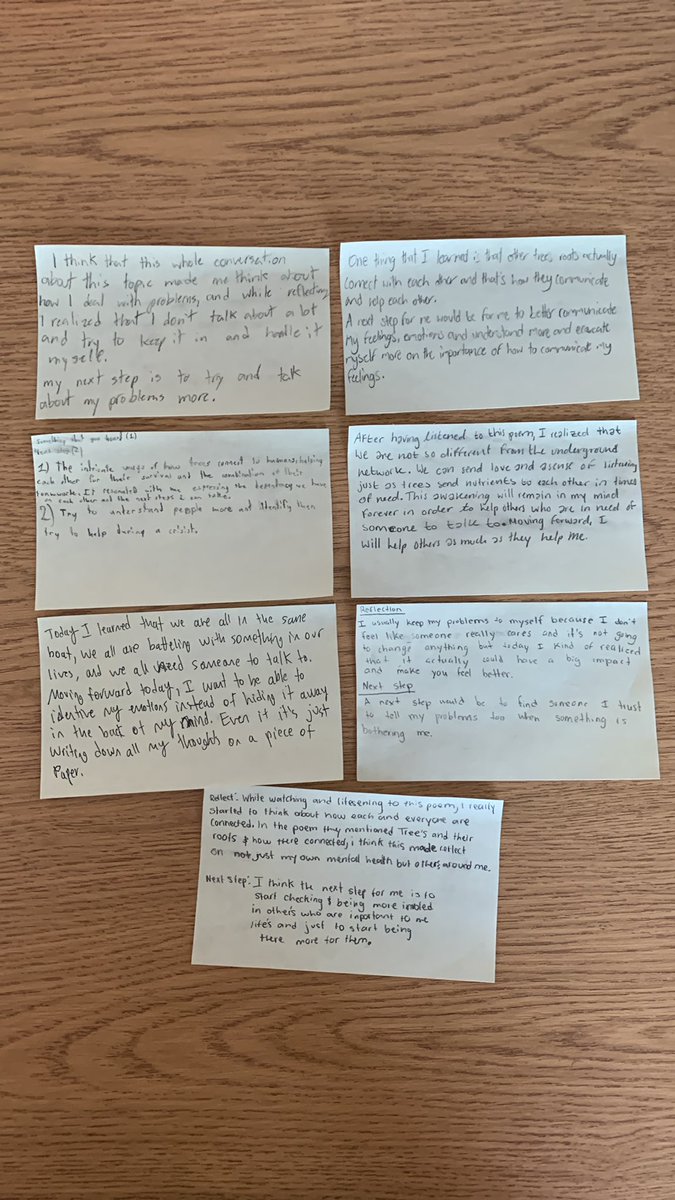 I think that this whole conversation
about this topic made me think about
how I deal with problems, and while reflecting
I realized that I don't talk about a lot
and try to keep it in and handle it
myself.
my next step is to try and talk
about my problems more.
One thing that I learned is that other trees roots actually
connect with each other and that's how they communicate
and help each other.
A next step for me would be for me to better communicate
my feelings, emotions and understand more and educate
myself more on the importance of how to communicate my
feelings.
Something that you heard (1)
Next step (2)
1) The intricate image of how trees connect to humans, helping
each other for their survival and the combination of their
teamwork. It resonated with me expressing the we have
on each other and the next steps I can take.
2) Try to understand people more and identify then
try to help during a crisis.
After having listened to this poem, I realized that
we are not so different from the underground
network. We can send love and a sense of listening
just as trees send nutrients to each other in times
of need. This awakening will remain in my mind
forever in order to help others who are in need of
someone to talk to. Moving forward, I
will help others as much as they help me.
Today I learned that we are all in the same
boat, we all are batteling with something in our
lives, and we all need someone to talk to.
Moving forward today, I want to be able to
identive my emotions instead of hiding it away
in the back of my mind. Even if it's just
writing down all my thoughts on a piece of
Paper.
Reflection
I usually keep my problems to myself because I don't
feel like someone really cares and it's not going
to change anything but today I kind of realized
that it actually could have a big impact
and make you feel better.
Next step
A next step would be to find someone I trust
to tell my problems too when something is
bothering me.
Reflect: While watching and lifesening to this poem, I really
started to think about how each and everyone are
connected. In the poem they mentioned Tree's and their
roots & how there connected, i think this made reflect
on not just my own mental health but other's around me.
Next step: I think the next step for me is to
start checking & being more in
in other's who are inportant to me
life's and just to start being
there more for them.